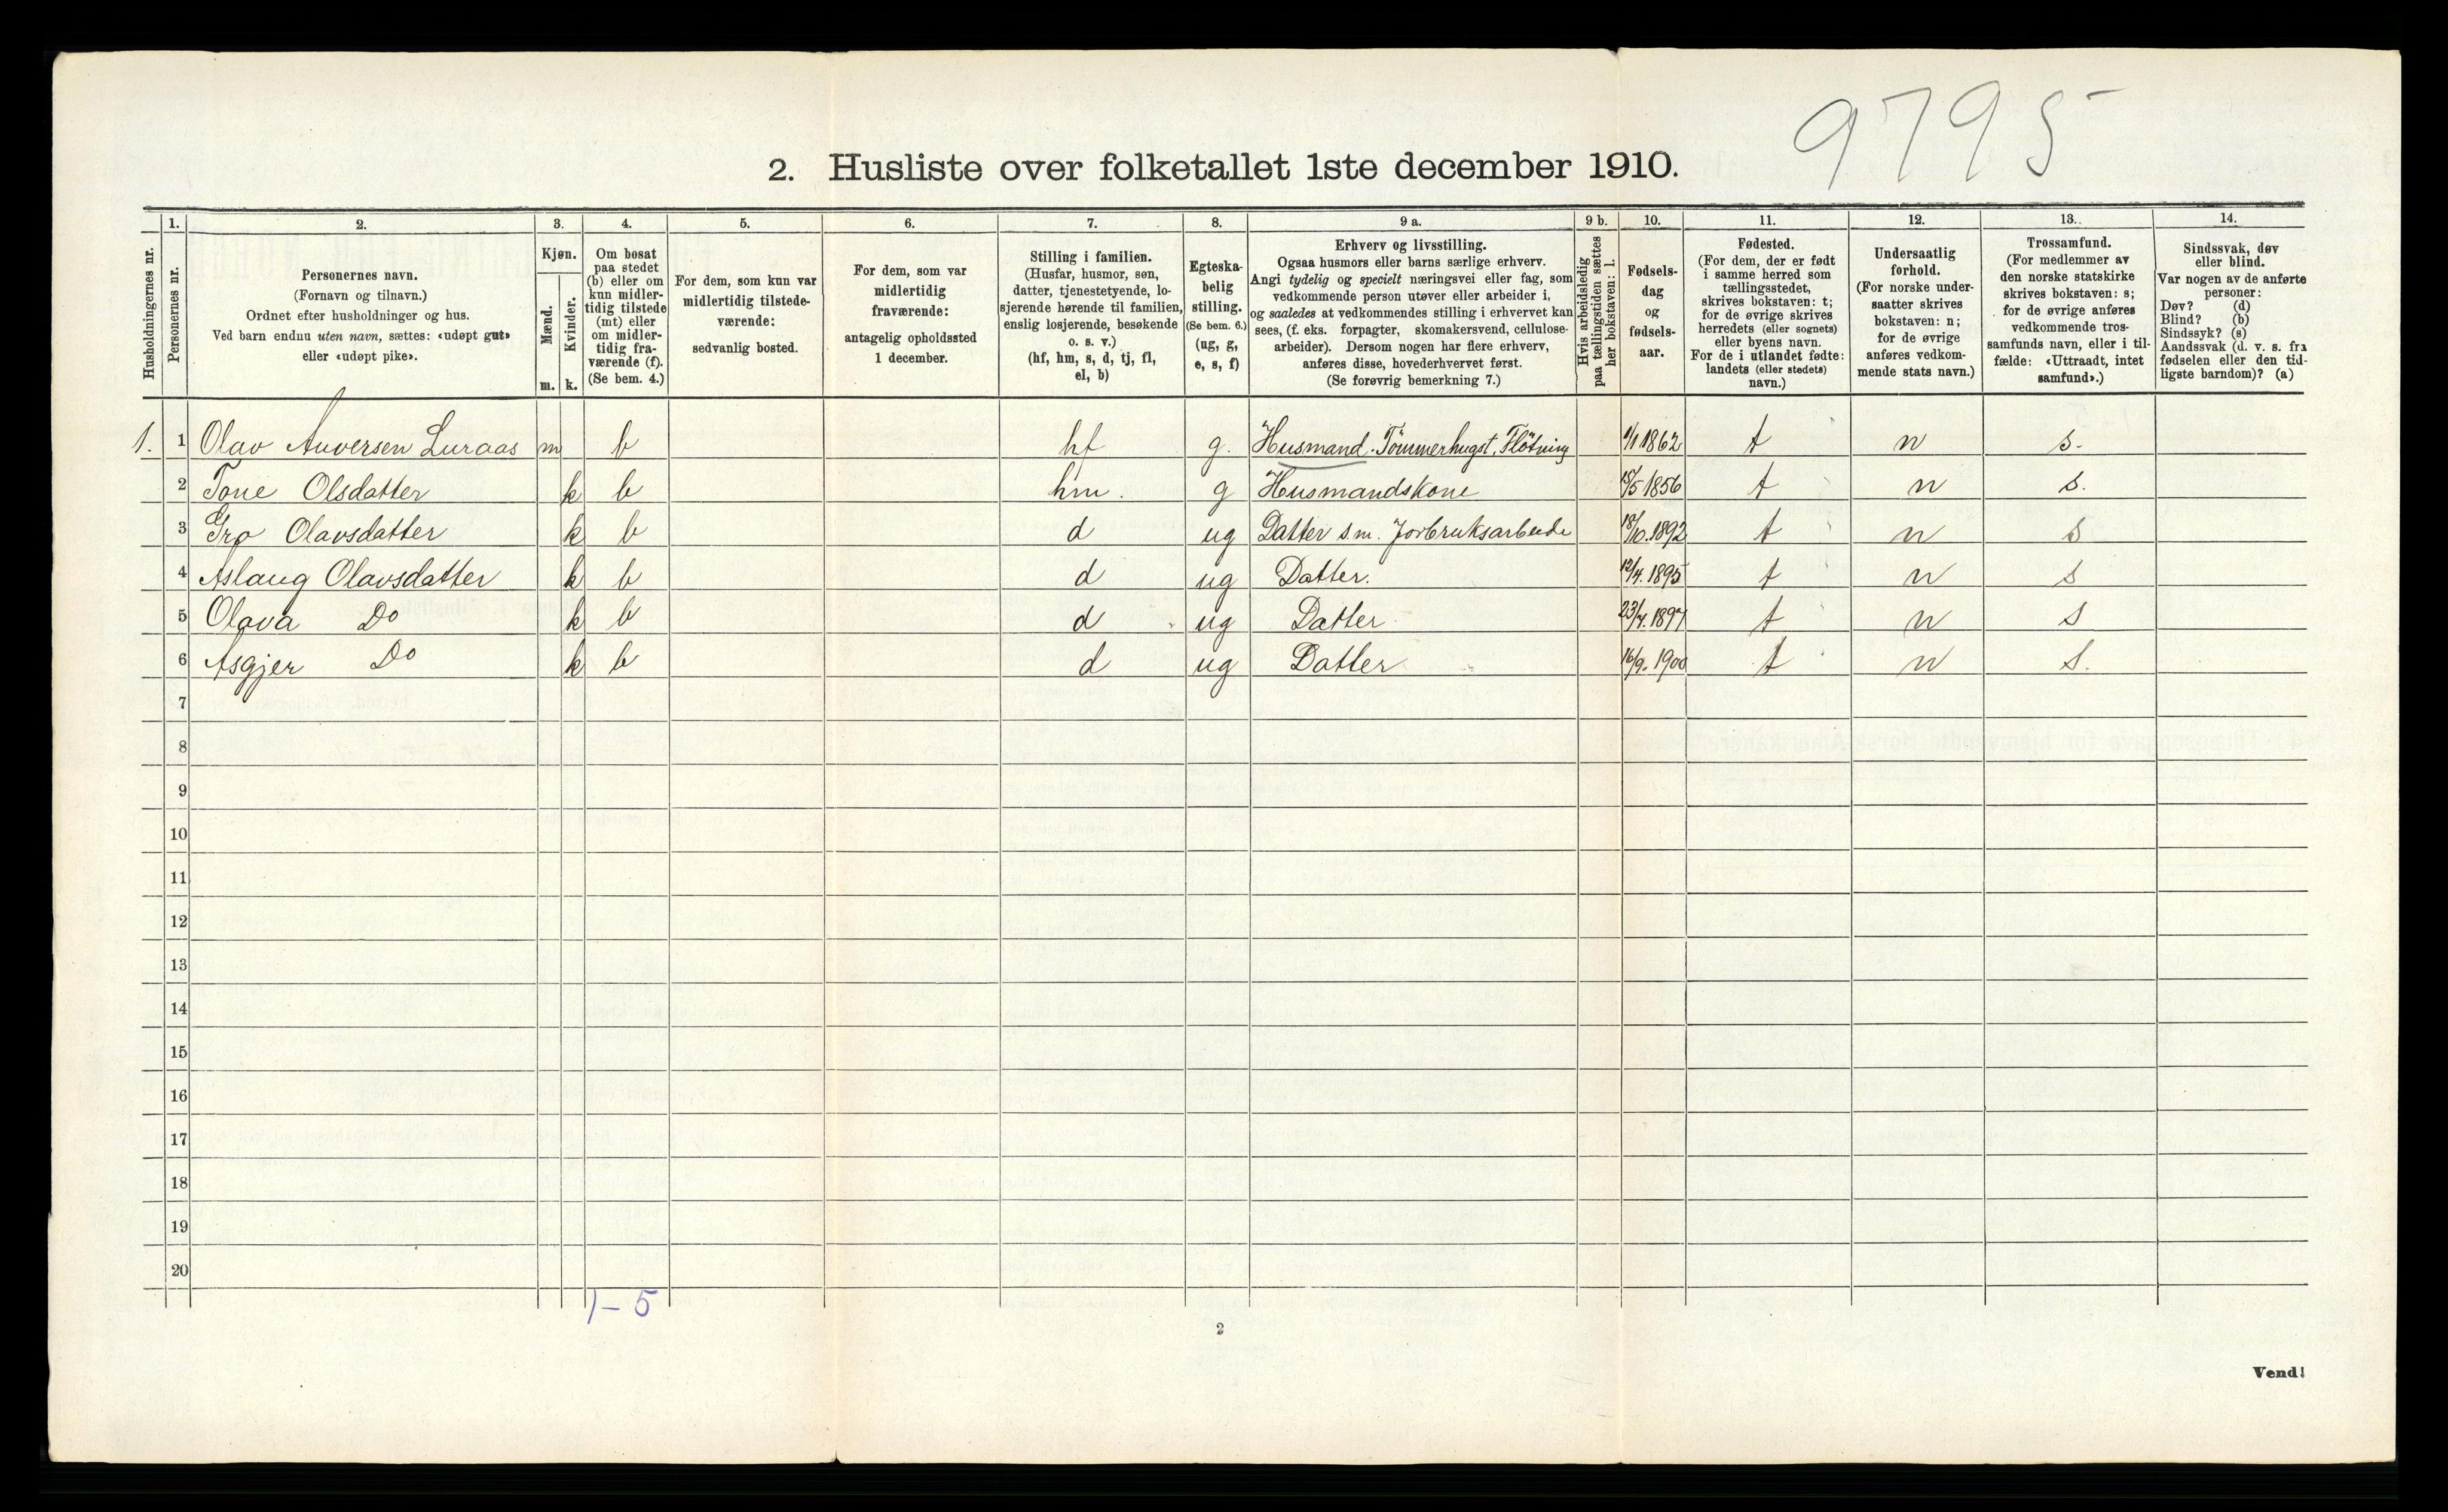 9795
2. Husliste over folketallet 1ste december 1910.
Husholdningernes nr.
1.
Personernes nr.
2.
Personernes navn.
(Fornavn og tilnavn.)
Ordnet efter husholdninger og hus.
Ved barn endnu uten navn, sættes: «udøpt gut»
eller «udøpt pike».
3.
Kjøn.
Mænd.
m.
Kvinder.
k.
4.
Om bosat
paa stedet
(b) eller om
kun midler-
tidig tilstede
(mt) eller
om midler-
tidig fra-
værende (f).
(Se bem. 4.)
5.
For dem, som kun var
midlertidig tilstede-
værende:
sedvanlig bosted.
6.
For dem, som var
midlertidig
fraværende:
antagelig opholdssted
1 december.
7.
Stilling i familien.
(Husfar, husmor, søn,
datter, tjenestetyende, lo-
sjerende hørende til familien,
enslig losjerende, besøkende
o. s. v.)
(hf, hm, s, d, tj, fl,
el, b)
8.
Egteska-
belig
stilling.
(Se bem. 6.)
(ug, g,
e, s, f)
9 a.
Erhverv og livsstilling.
Ogsaa husmors eller barns særlige erhverv.
Angi tydelig og specielt næringsvei eller fag, som
vedkommende person utøver eller arbeider i,
og saaledes at vedkommendes stilling i erhvervet kan
sees, (f. eks. forpagter, skomakersvend, cellulose-
arbeider). Dersom nogen har flere erhverv,
anføres disse, hovederhvervet først.
(Se forøvrig bemerkning 7.)
9 b.
Hvis arbeidsledig
paa tællingstiden sættes
her bokstaven: l.
10.
Fødsels-
dag
og
fødsels-
aar.
11.
Fødested.
(For dem, der er født
i samme herred som
tællingsstedet,
skrives bokstaven: t;
for de øvrige skrives
herredets (eller sognets)
eller byens navn.
For de i utlandet fødte:
landets (eller stedets)
navn.)
12.
Undersaatlig
forhold.
(For norske under-
saatter skrives
bokstaven: n;
for de øvrige
anføres vedkom-
mende stats navn.)
13.
Trossamfund.
(For medlemmer av
den norske statskirke
skrives bokstaven: s;
for de øvrige anføres
vedkommende tros-
samfunds navn, eller i til-
fælde: «Uttraadt, intet
samfund».)
14.
Sindssvak, døv
eller blind.
Var nogen av de anførte
personer:
Døv? (d)
Blind? (b)
Sindssyk? (s)
Aandssvak (d. v. s. fra
fødselen eller den tid-
ligste barndom)? (a)
1. 1 Olav Auversen Luraas m b hf g. Husmand. Tömmerhugst, Flötning 1/1 1862 t n s.
2 Tone Olsdatter k b hm. g Husmandskone /5 1856 t n s.
3 Gro Olavsdatter k b d ug Datter s.m. Jorbruksarbeide 18/10.1892 t n s
4 Aslaug Olavsdatter k b d ug Datter. 12/4.1895 t n s
5 Olava Do k b d ug Datter 23/4.1897 t n s
6 Asgjer Do k b d ug Datter 16/9.1900 t n s.
7
8
9
10
11
12
13
14
15
16
17
18
19
20
1-5
2
Vend!